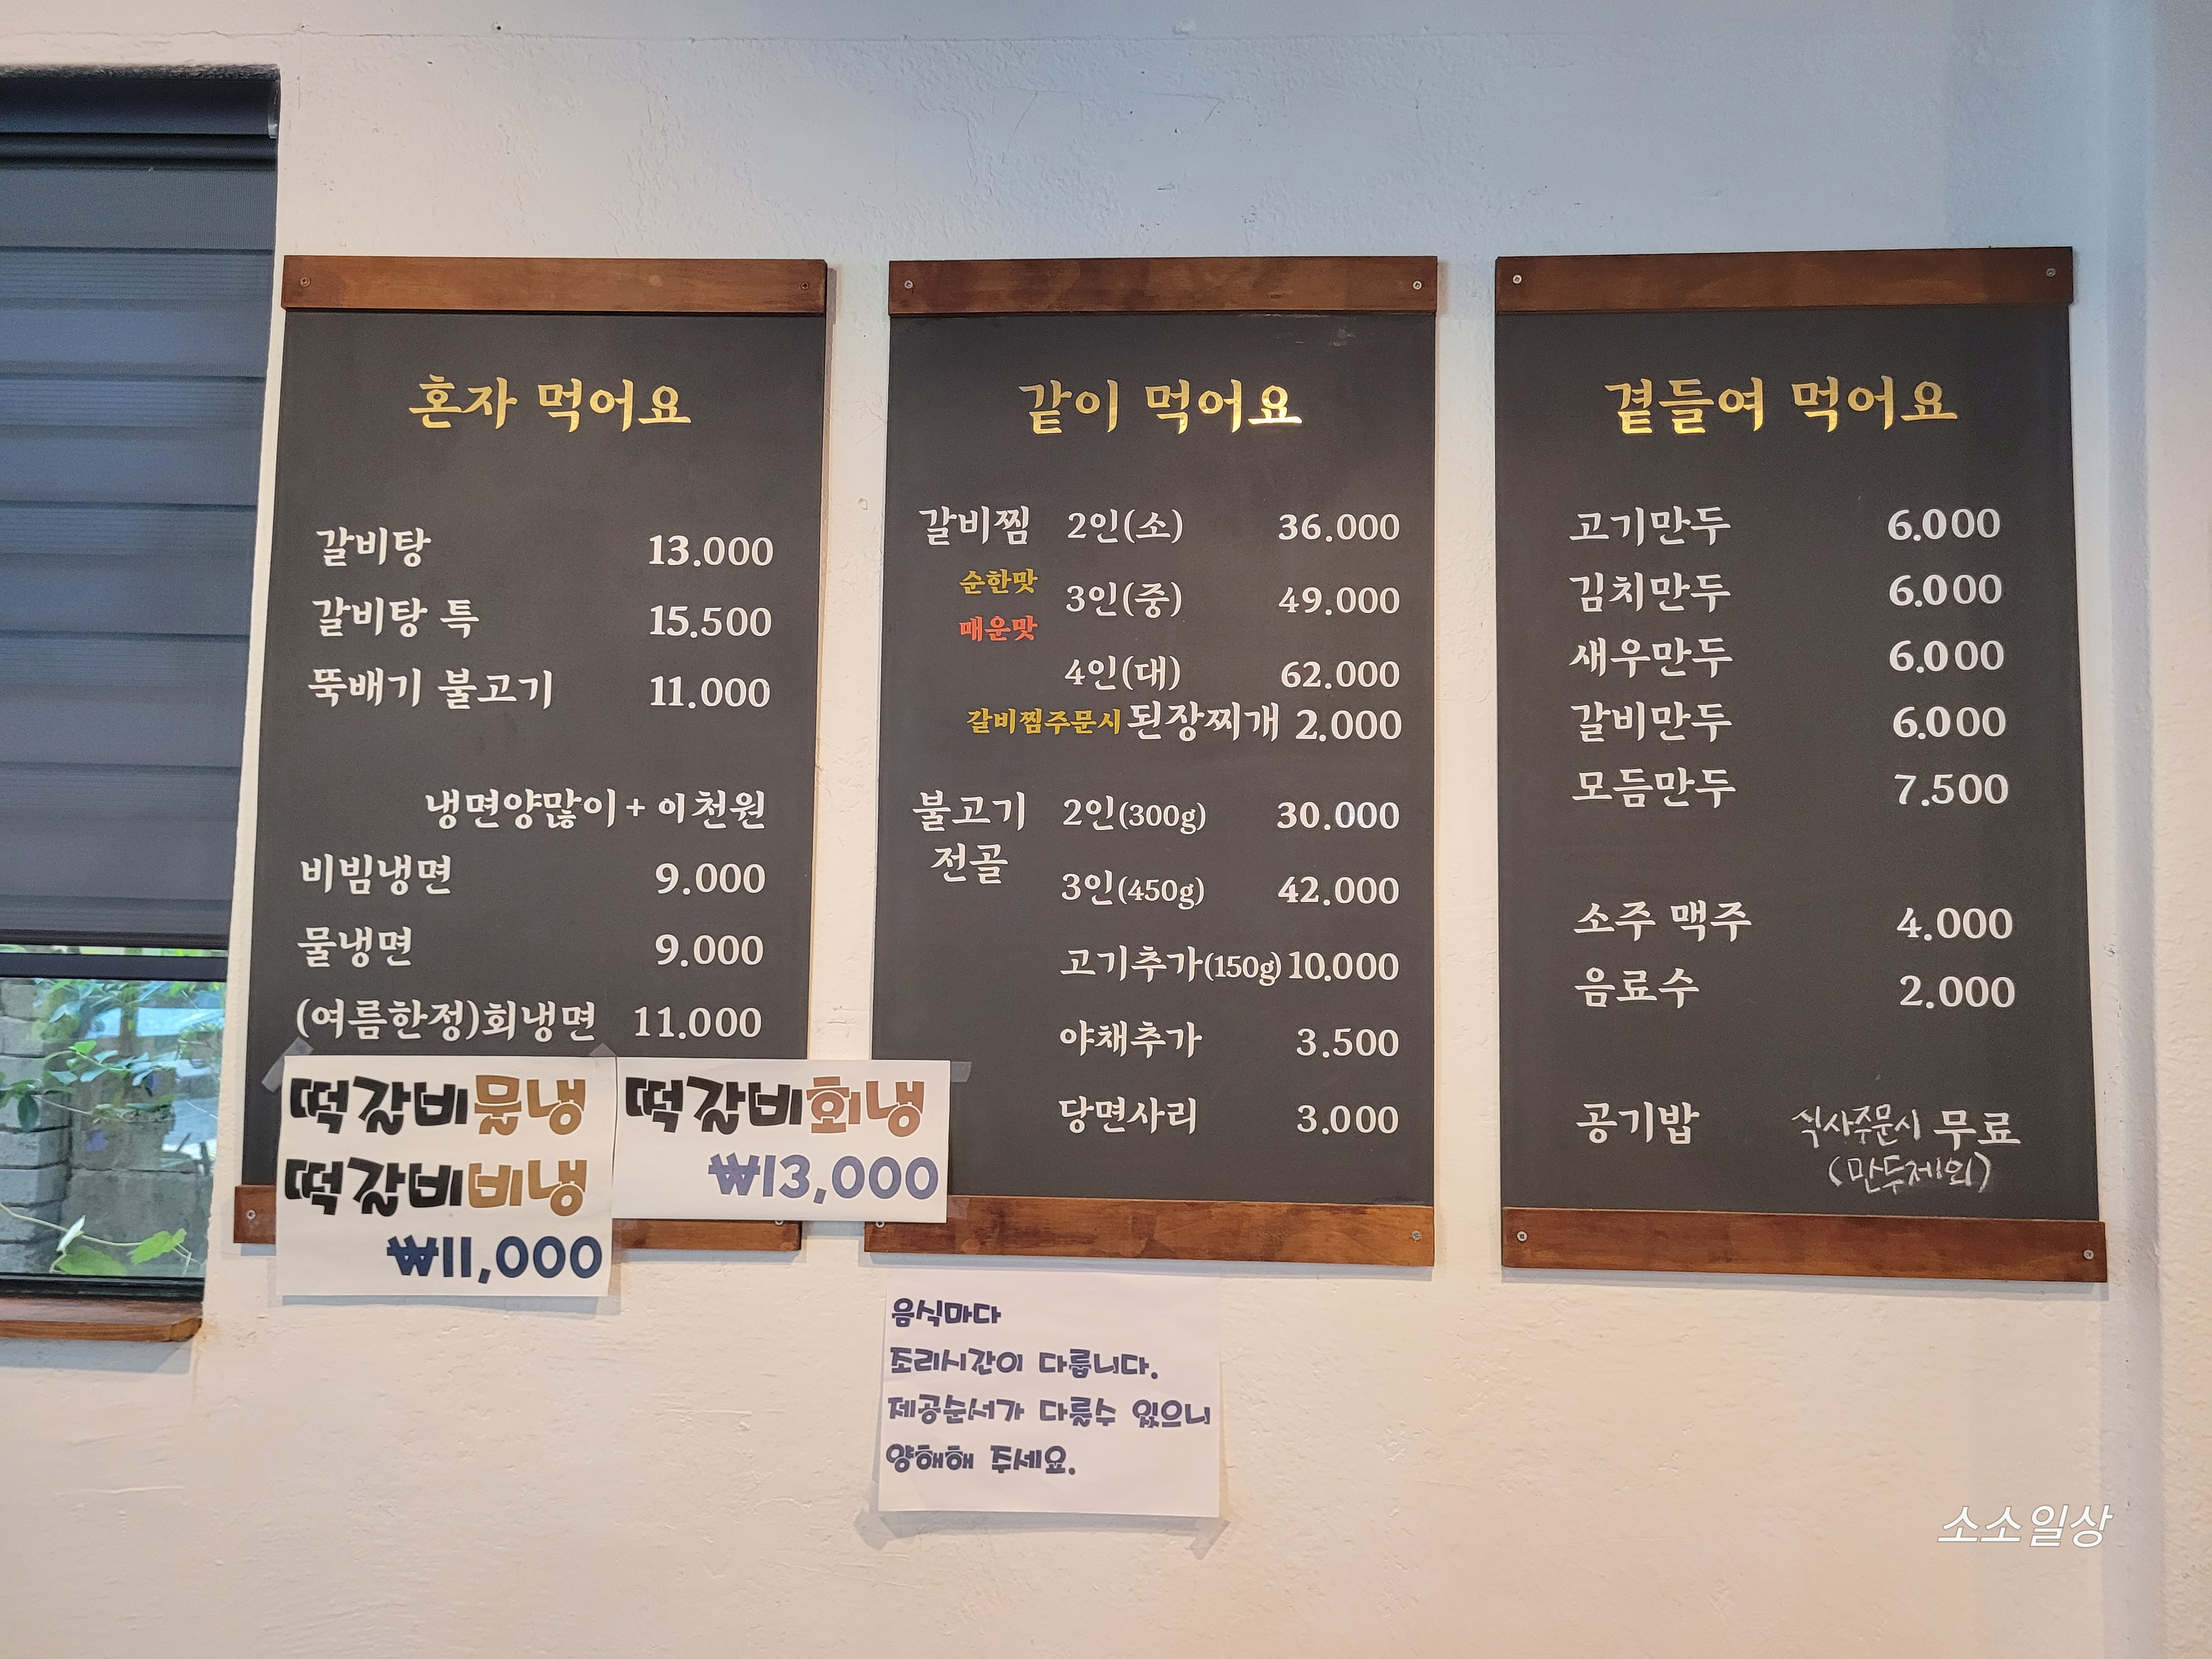 혼자 먹어요
갈비탕 13.000
갈비탕 특 15.500
뚝배기 불고기 11.000
냉면양많이+ 이천원
비빔냉면 9.000
물냉면 9.000
(여름한정)회냉면 11.000
떡갈비물냉
떡갈비비냉
₩11,000
떡갈비회냉
₩13,000
같이 먹어요
갈비찜 2인(소) 36.000
순한맛
3인(중) 49.000
매운맛
4인(대) 62.000
갈비찜주문시 된장찌개 2.000
불고기 2인(300g) 30.000
전골
3인(450g) 42.000
고기추가(150g) 10.000
야채추가 3.500
당면사리 3.000
음식마다
조리시간이 다릅니다.
제공순서가 다를수 있으니
양해해 주세요.
곁들여 먹어요
고기만두 6.000
김치만두 6.000
새우만두 6.000
갈비만두 6.000
모듬만두 7.500
소주 맥주 4.000
음료수 2.000
공기밥 식사주문시 무료
(만두제외)
소소일상